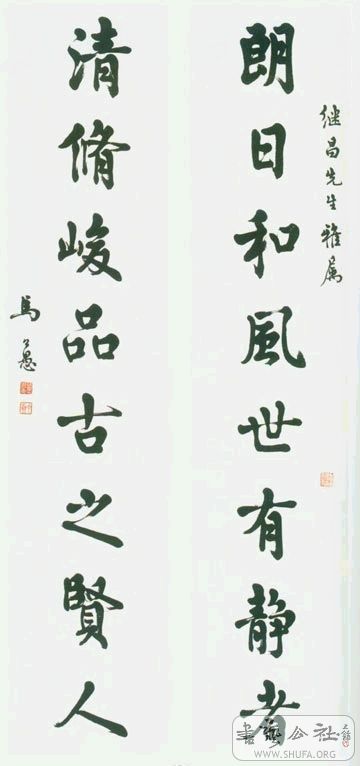 继昌先生雅属
朗日和風世有静者
清脩峻品古之賢人
馬公愚
書公社
WWW.SHUFA.ORG